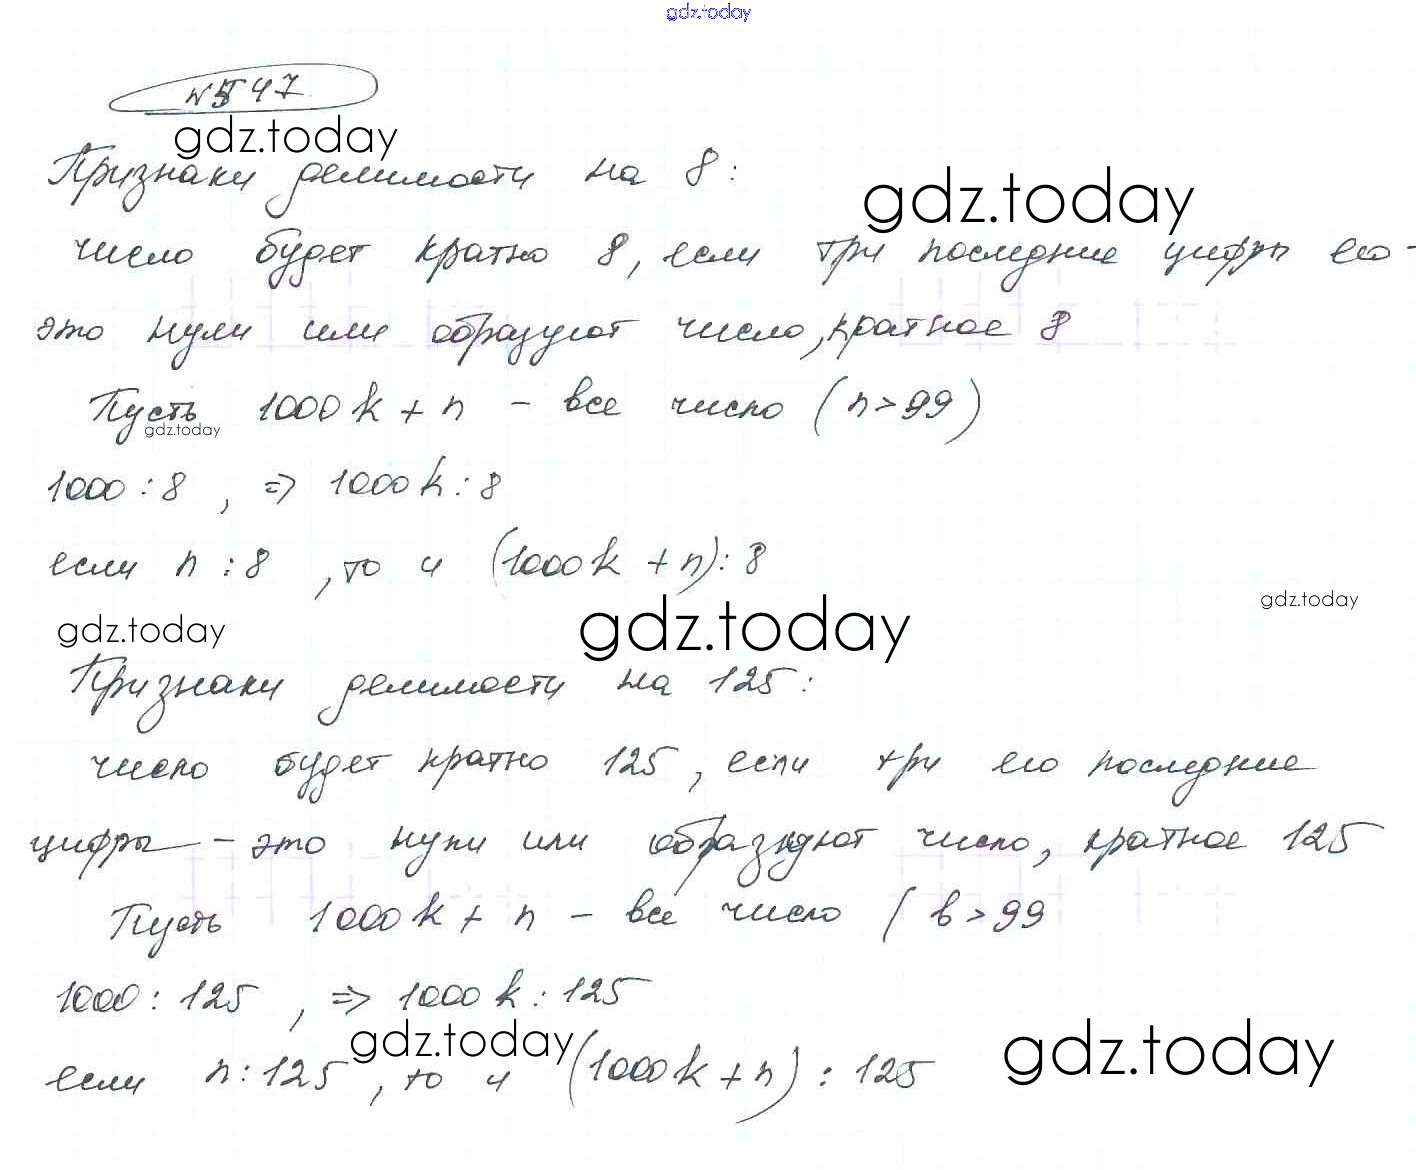 gdz.today
№547
gdz.today
Признаки делимости на 8:
gdz.today
число будет кратно 8, если три последние цифры его -
это нули или образуют число, кратное 8
Пусть 1000k + n - все число (n > 99)
gdz.today
1000 : 8 , => 1000k : 8
если n : 8 , то и (1000k + n) : 8
gdz.today
gdz.today
gdz.today
Признаки делимости на 125:
число будет кратно 125, если три его последние
цифры - это нули или образуют число, кратное 125
Пусть 1000k + n - все число ( b > 99
1000 : 125 , => 1000k : 125
gdz.today
gdz.today
если n : 125 , то и (1000k + n) : 125